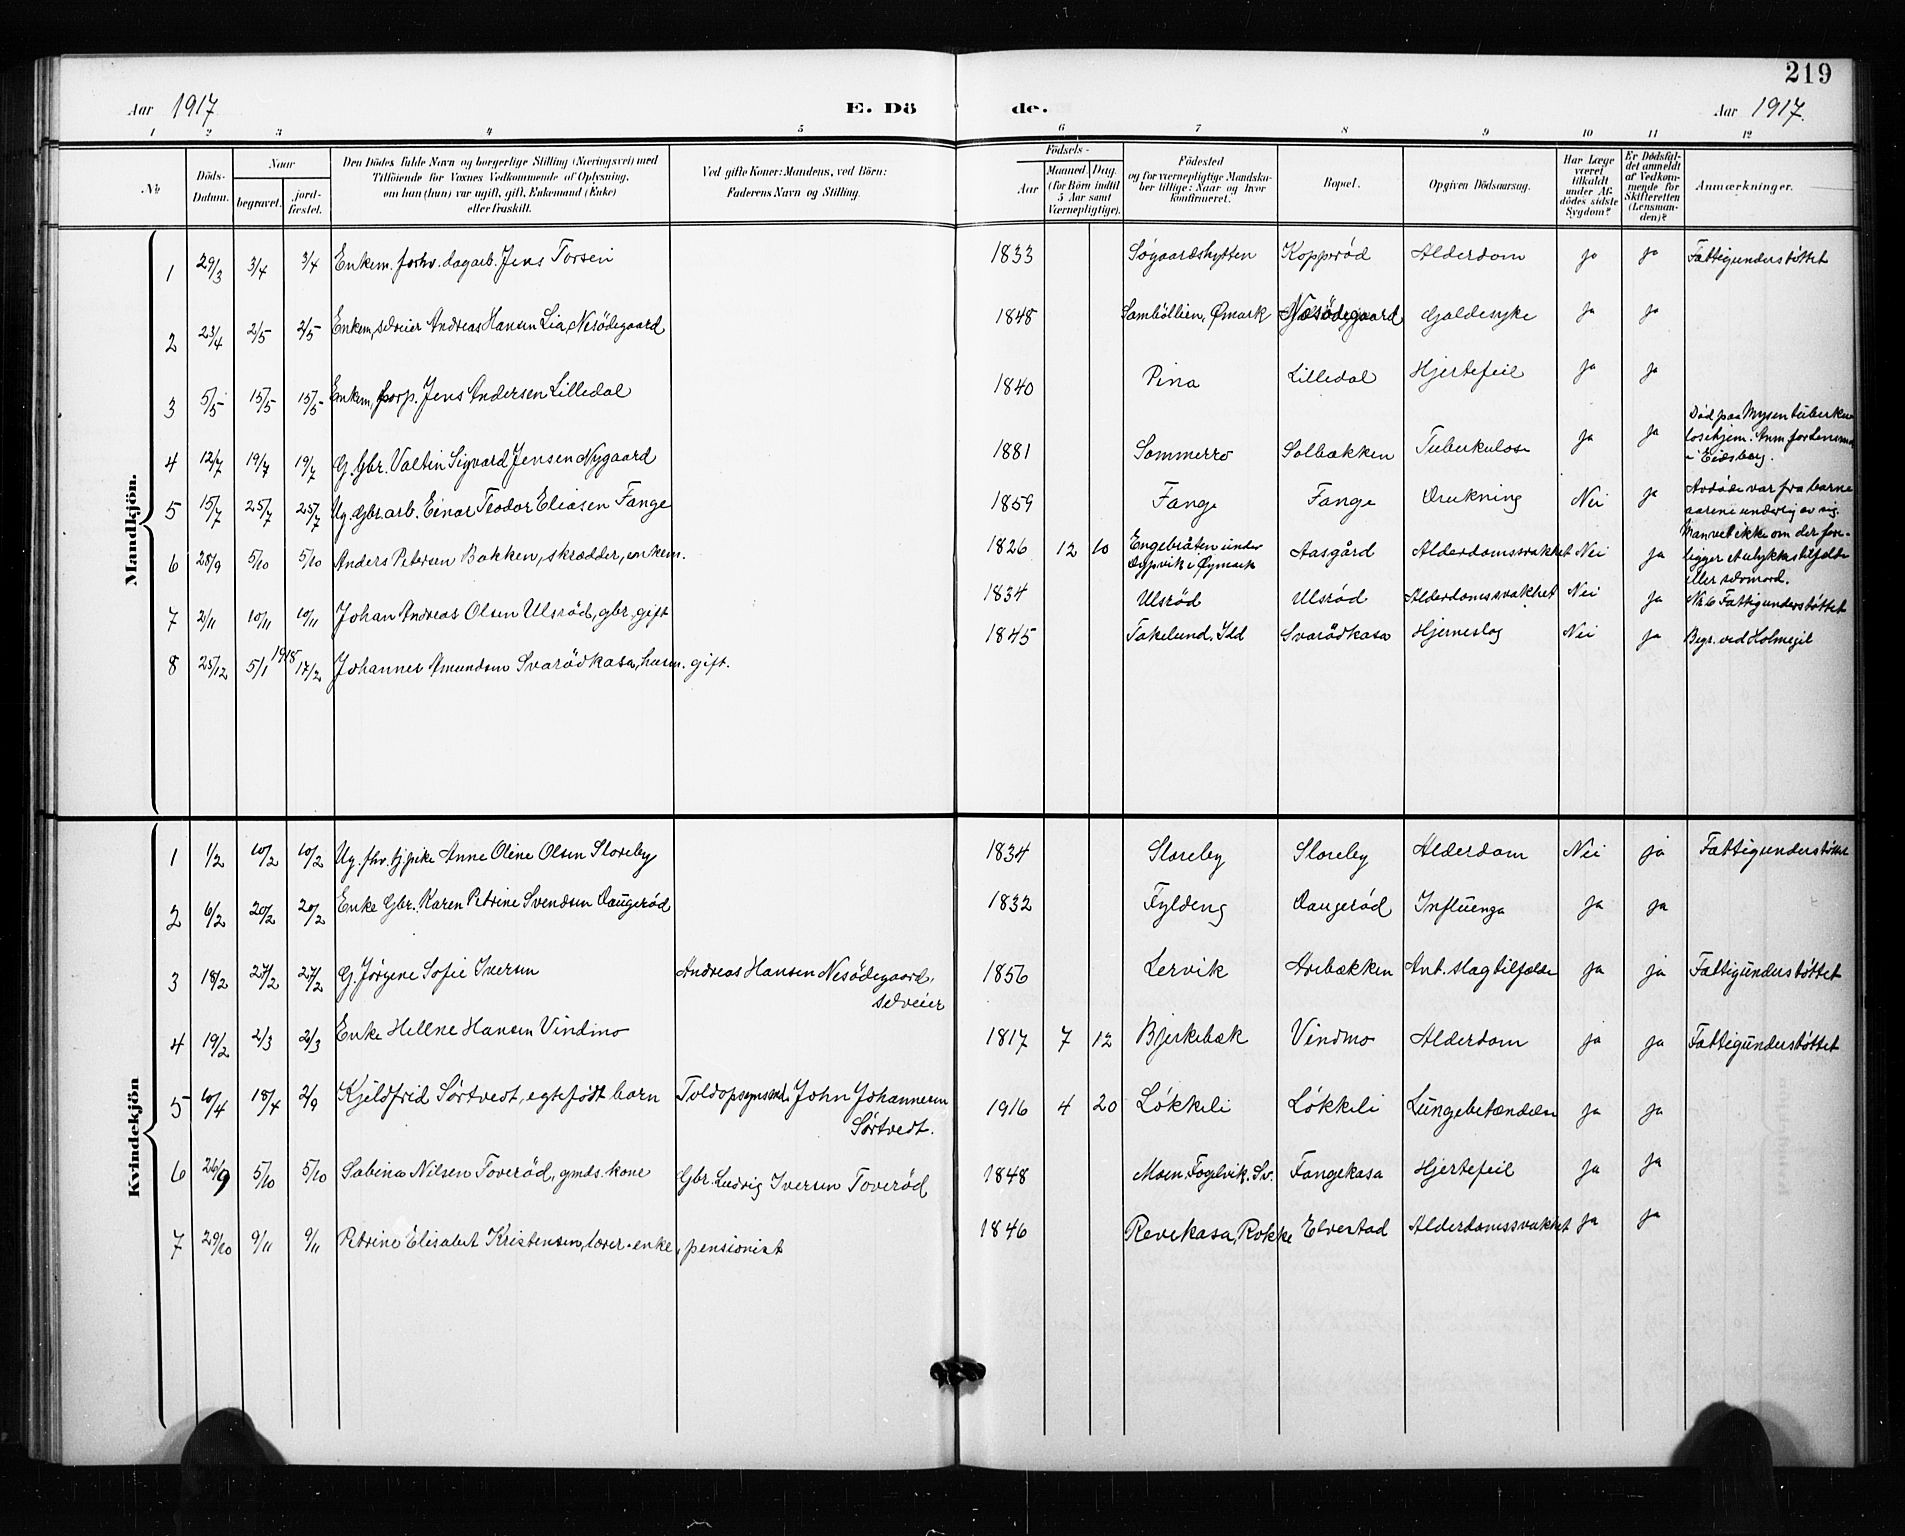 219
Aar 1917
E. Dö
de.
Aar 1917.
1 2 3 4 5 6 7 8 9 10 11 12
No
Döds-Datum.
Naar
begravet.
jord-fæstet.
Den Dödes fulde Navn og borgerlige Stilling (Næringsvei) med
Tilföiende for Voxnes Vedkommende af Oplysning,
om han (hun) var ugift, gift, Enkemand (Enke)
eller fraskilt.
Ved gifte Koner: Mandens, ved Börn:
Faderens Navn og Stilling.
Födsels-
Aar
Maaned. Dag.
(for Börn indtil
5 Aar samt
Værnepligtige).
Födested
og for værnepligtige Mandska-
ber tillige: Naar og hvor
konfirmeret.
Bopæl.
Opgiven Dödsaarsag.
Har Læge
været
tilkaldt
under Af-
dödes sidste
Sygdom?
Er Dödsfal-
det anmeldt
af Vedkom-
mende for
Skifteretten
(Lensman-
den)?
Anmærkninger.
Mandkjön.
1 29/3 3/4 3/4 Enkem. forhv. dagarb. Jens Torsen 1833 Søgaardshytten Kopperød Alderdom ja ja Fattigunderstøttet
2 23/4 2/5 2/5 Enkem, selveier Andreas Hansen Lia, Nesödegaard 1848 Samböllien, Ømark Næsödegaard Galdesyke ja ja
3 5/5 15/5 15/5 Enkem, forp. Jens Andersen Lilledal 1840 Pina Lilledal Hjertefeil ja ja
4 12/7 19/7 19/7 G. Gbr. Valtin Sigvard Jensen Nygaard 1881 Sommerro Solbakken Tuberkulose ja ja Död paa Mysen tuberku-
losehjem. Anm for lensm.
i Eidsberg.
5 15/7 25/7 25/7 Ug. Gbr.arb. Einar Teodor Eliasen Fange 1859 Fange Fange Drukning Nei ja Avdøde var fra barne
aarene underlig av sig.
Man vet ikke om der fore-
ligger et ulykkestilfælde
eller selvmord.
6 28/9 5/10 5/10 Anders Petersen Bakken, skrædder, enkem. 1826 12 10 Engebråten under
Øymark Aasgård Alderdomssvakhet Nei ja
Nr 6 Fattigunderstøttet
7 2/11 10/11 10/11 Johan Andreas Olsen Ulsrød, gbr, gift 1834 Ulsrød Ulsrød Alderdomssvakhet Nei ja
8 25/12 5/1 1918 17/2 Johannes Amundsen Svarödkasa, husm. gift. 1845 Takelund, Idd Svarödkasa Hjerneslag Nei ja Begr. ved Holmegil
Kvindekjön
1 1/2 10/2 10/2 Ug. fhv. tj.pike Anne Oline Olsen Storeby 1834 Storeby Storeby Alderdom Nei ja Fattigunderstøttet
2 6/2 20/2 20/2 Enke Gbr. Karen Petrine Svendsen Daugerød 1832 Fyldeng Daugerød Influenza ja ja
3 18/2 27/2 27/2 G. Jørgene Sofie Iversen Andreas Hansen Nesödegaard,
selveier 1856 Lervik Orebækken Ant. slagtilfælde ja ja Fattigunderstøttet
4 19/2 2/3 2/3 Enke Hellne Hansen Vindmo 1817 7 12 Bjerkebæk Vindmo Alderdom ja ja Fattigunderstøttet
5 10/4 18/4 2/9 Kjeldfrid Sørtvedt, egtefödt barn Toldopsynsmd. John Johannesen
Sørtvedt. 1916 4 20 Løkkeli Løkkeli Lungebetændelse ja ja
6 26/9 5/10 5/10 Sabina Nilsen Toverød, gmds. kone Gbr. Ludvig Iversen Toverød 1848 Moen, Foglvik. Sv. Fangekasa Hjertefeil ja ja
7 29/10 9/11 9/11 Petrine Elisabet Kristensen, lærer-enke, pensionist 1846 Revekasa, Rokke Elvestad Alderdomssvakhet ja ja